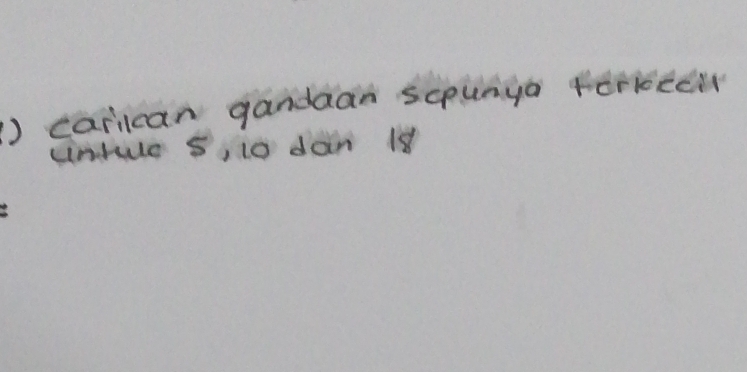 1) carikan gandaan sepunya terkecil
untuk 5, 10 dan 18
=